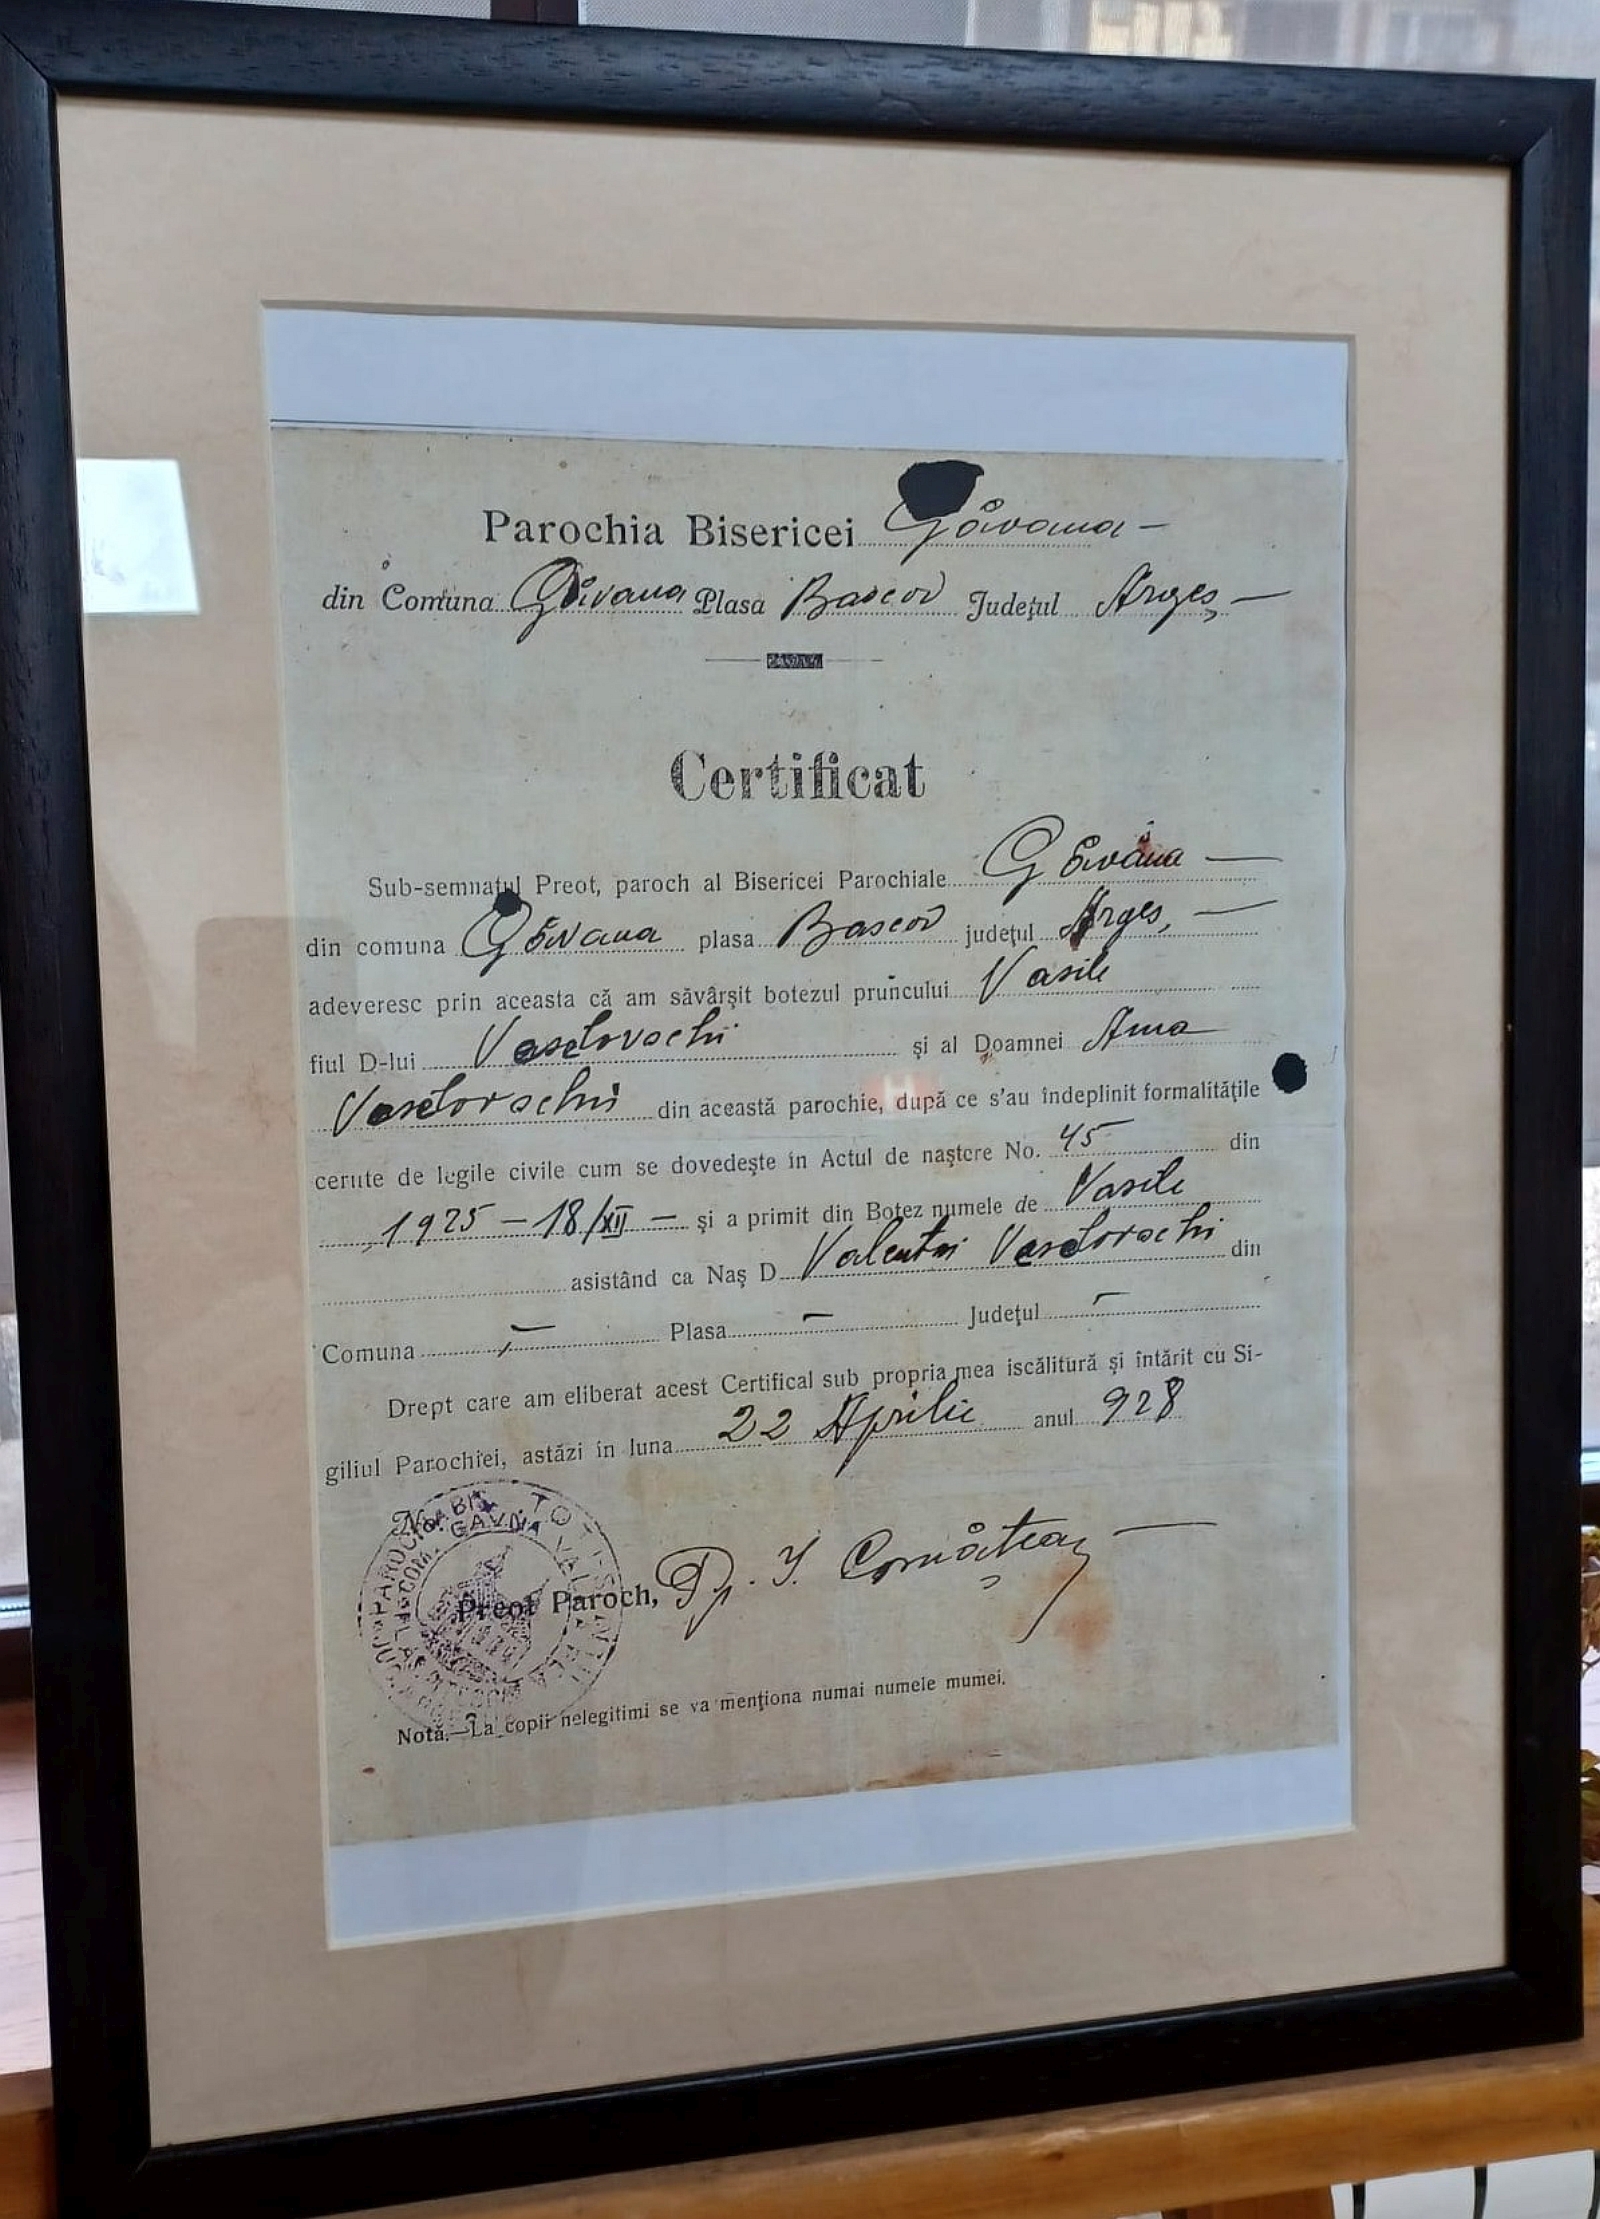 Parochia Bisericei Găvana —
din Comuna Găvana Plasa Bascov Județul Argeș —
Certificat
Sub-semnatul Preot, paroch al Bisericei Parochiale Găvana —
din comuna Găvana plasa Bascov județul Argeș, —
adeveresc prin aceasta că am săvârșit botezul pruncului Vasile
fiul D-lui și al Doamnei Ana
din această parochie, după ce s'au îndeplinit formalitățile
cerute de legile civile cum se dovedește in Actul de naștere No. 45 din
1925 — 18/XII — și a primit din Botez numele de Vasile
asistând ca Naș D Valentin din
Comuna — Plasa — Județul —
Drept care am eliberat acest Certifical sub propria mea iscălitură și întărit cu Si-
giliul Parochiei, astăzi in luna 22 Aprilie anul 928
No.
Preot Paroch, Pr. I.
Notă.—La copii nelegitimi se va menționa numai numele mumei.